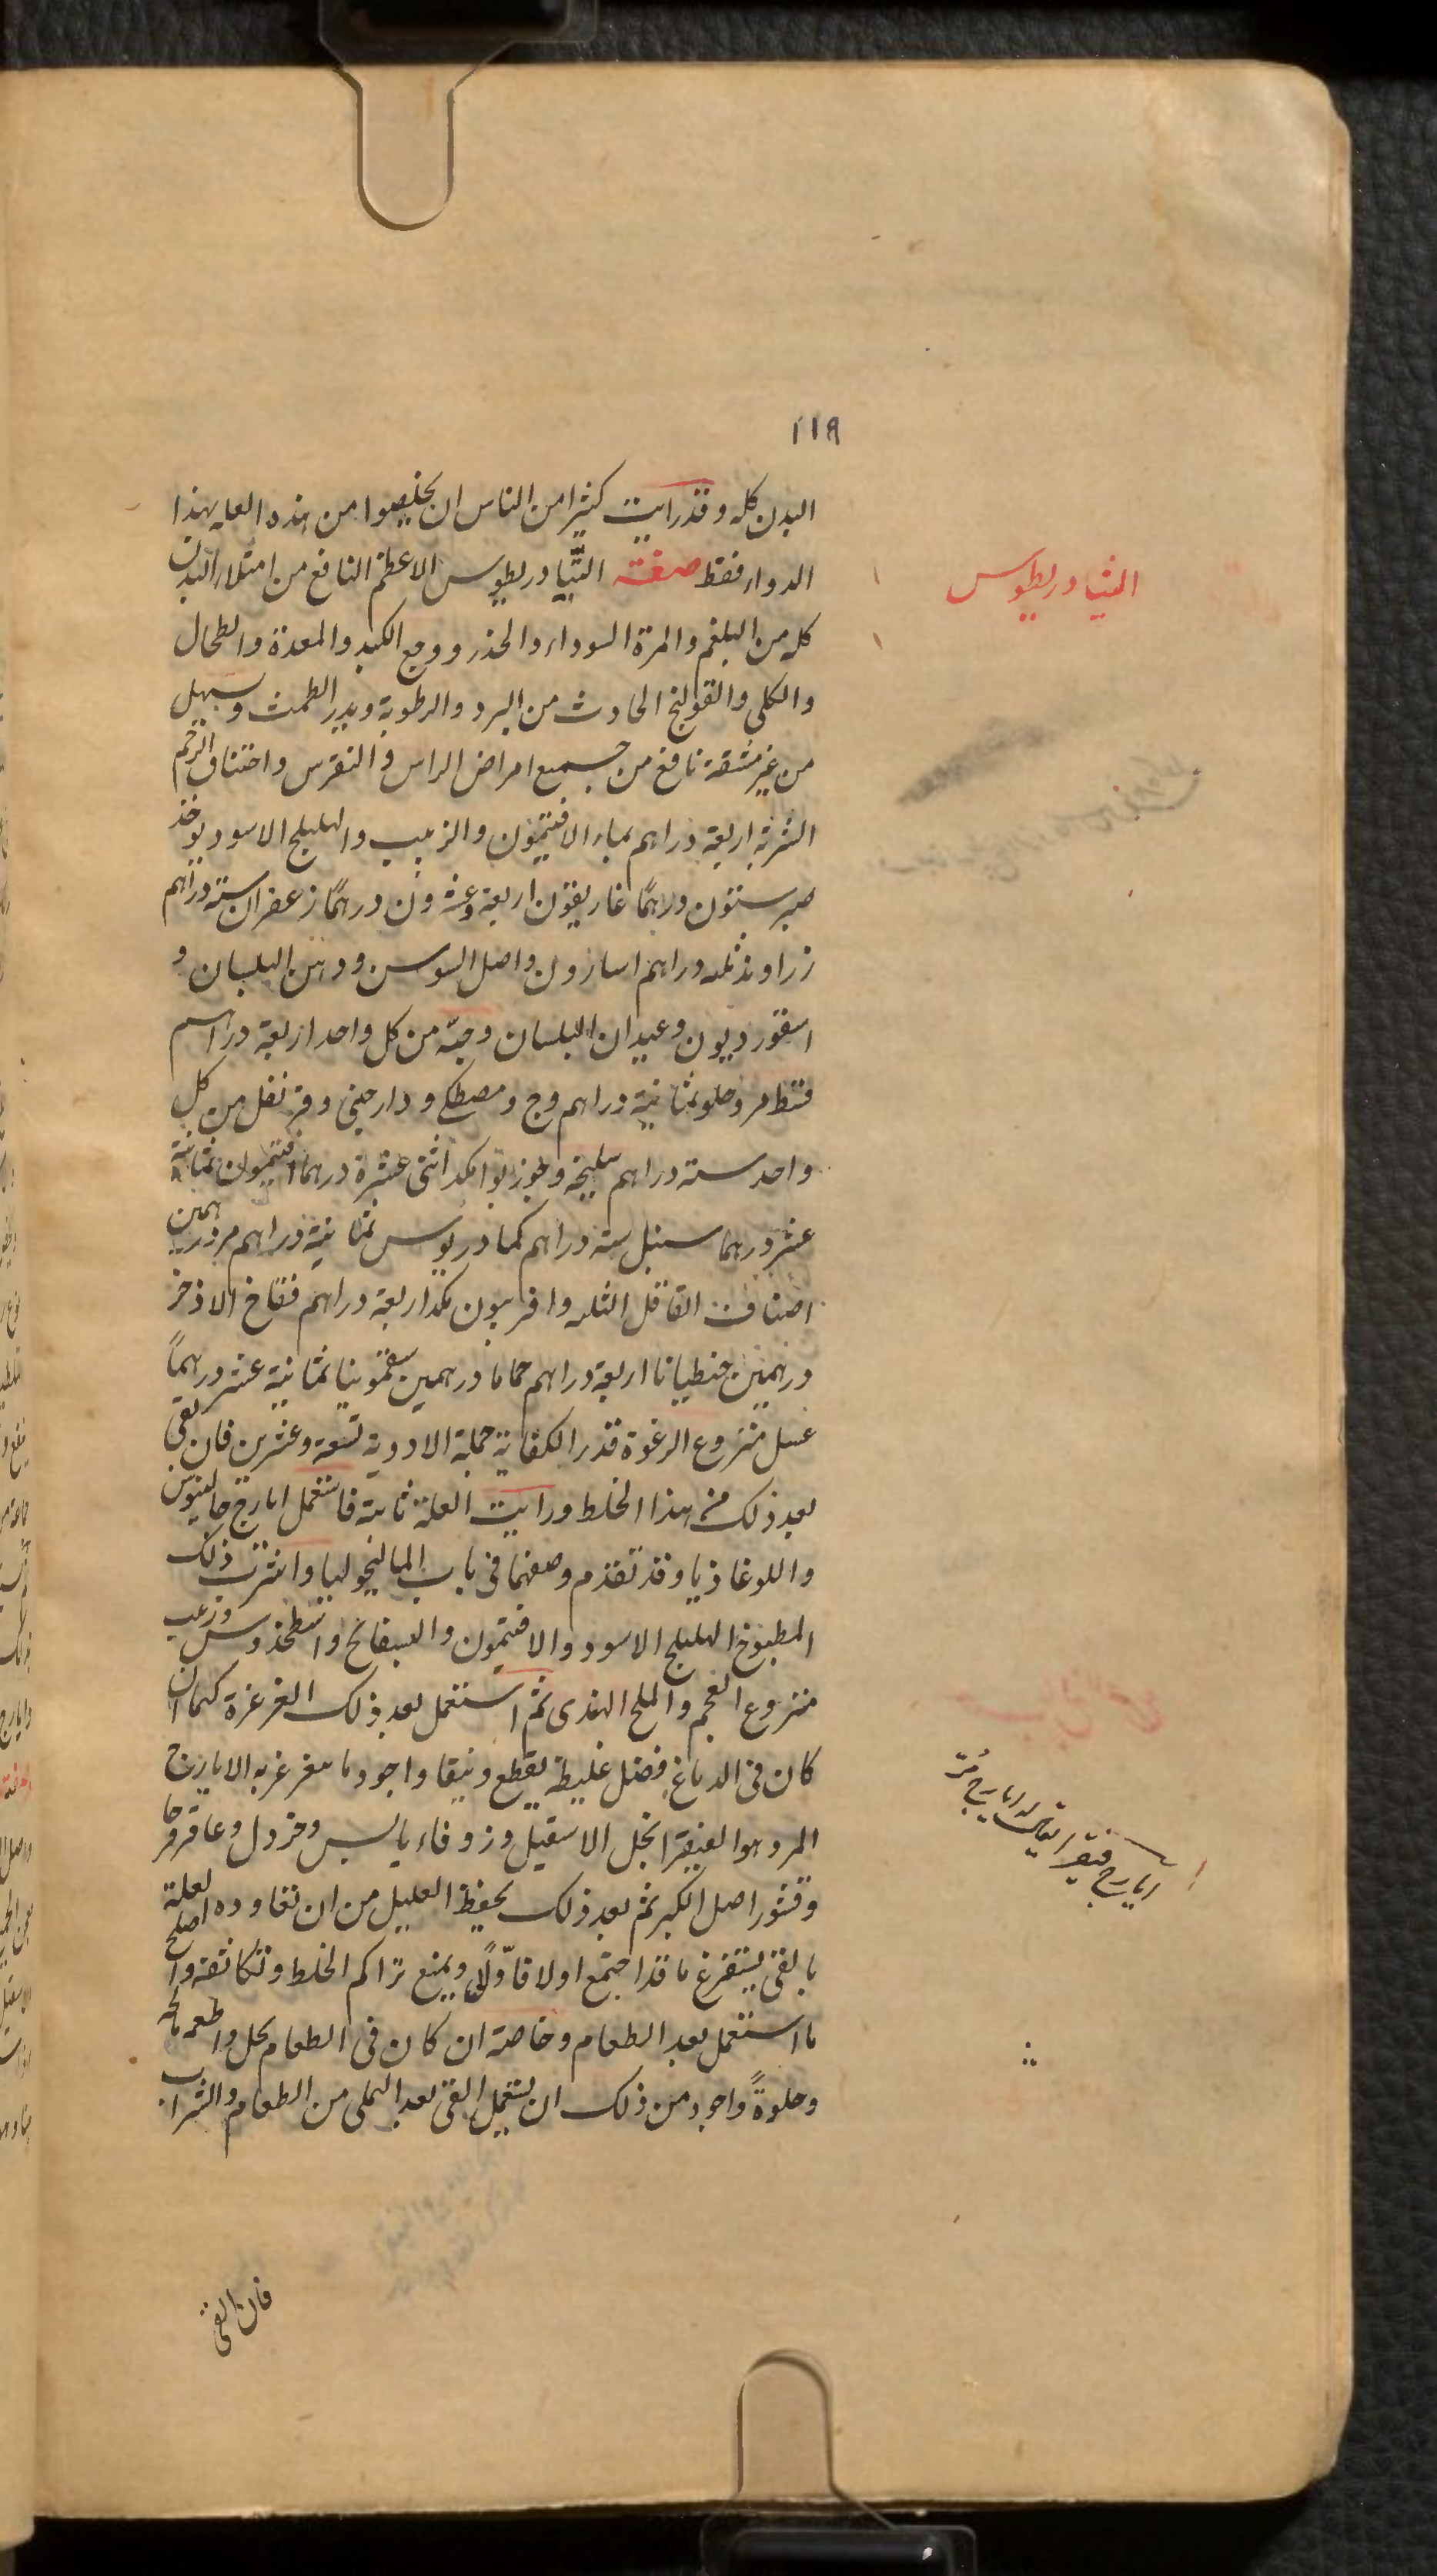 ١١٩
البدن كله وقد رايت كثيرا من الناس ان يخلصوا من هذه العله بهذا
الدواء فقط صفة الثيادريطوس الاعظم النافع من امتلاء البدن
كله من البلغم والمرة السوداء والخدر ووجع الكبد والمعدة والطحال
والكلى والقولنج الحادث من البرد والرطوبة ويدر الطمث وسهيل
من غير مشقة نافع من جميع امراض الراس والنقرس واختناق الرحم
الشربة اربعة دراهم بماء الافتيمون والزبيب والهليلج الاسود يوخذ
صبر ستون درهمًا غاريقون اربعة وعشرون درهمًا زعفران ستة دراهم
زراوند ثلثه دراهم اسارون واصل السوسن ودهن البلسان و
اسقورديون وعيدان البلسان وحبّه من كل واحد اربعة دراهم
قسط مر وحلو ثمانية دراهم وج ومصطكى ودارجينى وقرنفل من كل
واحد ستة دراهم سليخة وجوزبوا مكد اثنى عشرة درهما افتيمون ثمانية
عشر درهما سنبل ستة دراهم كمادريوس ثمانية دراهم مر درهمين
اصناف الفافل الثلثه وافربيون مكد اربعة دراهم فقاح الاذخر
درهمين جنطيانا اربعة دراهم حماما درهمين سقمونيا ثمانية عشر درهمًا
عسل منزوع الرغوة قدر الكفاية جملة الادوية تسعة وعشرين فان بقى
بعد ذلك من هذا الخلط ورايت العلة ثابتة فاستعمل ايارج جالينوس
واللوغاذيا وقد تقدم وصفهما فى باب الماليخوليا واشرب ذلك
المطبوخ الهليلج الاسود والافتيمون والبسفايج واسطخدوس وزبيب
منزوع العجم والملح الهندى ثم استعمل بعد ذلك الغرغرة كيما ان
كان فى الدماغ فضل غليظ يقطع وينقا واجود ما يتغرغر به الايارج
المر وهو الفيقرا بخل الاسقيل وزوفاء يابس وخردل وعاقرقرحا
وقشور اصل الكبر ثم بعد ذلك يحفظ العليل من ان تعاوده العلة
بالقى يستفرغ ما قد اجتمع اولا فاوّلًا ويمنع تراكم الخلط وتكاثفه واصلح
ما استعمل بعد الطعام وخاصة ان كان فى الطعام بخل واطعمة مالحه
وحلوةً واجود من ذلك ان يستعمل القى بعد التملى من الطعام والشراب
فان القى
الثيادريطوس
ايارج فيقرا يقال له ايارج مُرّ